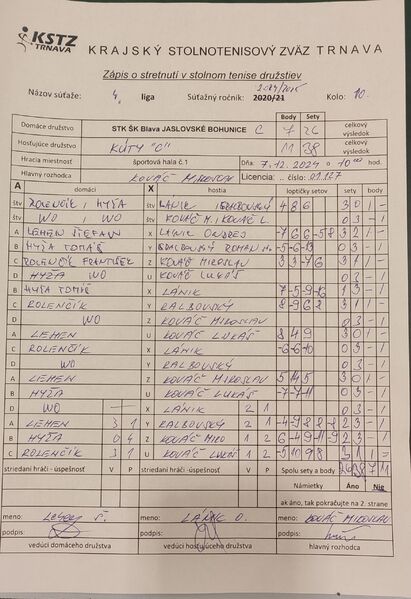 KSTZ
TRNAVA
KRAJSKÝ STOLNOTENISOVÝ ZVÄZ TRNAVA
Zápis o stretnutí v stolnom tenise družstiev
2024/2025
Názov súťaže: 4. liga Súťažný ročník: 2020/21 Kolo: 10.
Body Sety
Domáce družstvo STK ŠK Blava JASLOVSKÉ BOHUNICE C 7 26 celkový výsledok
Hosťujúce družstvo KÚTY "C" 11 38 celkový výsledok
Hracia miestnosť športová hala č.1 Dňa: 7.12.2024 o 10:00 hod.
Hlavný rozhodca KOVÁČ MIROSLAV Licencia ... číslo: 01127
A domáci X hostia loptičky setov sety body
štv ROLENČÍK, HYŽA štv LÁNIK, 4 8 6 3 0 1 -
štv WO, WO štv KOVÁČ M. KOVÁČ L. 0 3 - 1
A LEHEN ŠTEFAN X LÁNIK ONDREJ -7 6 6 -5 8 3 2 1 -
B HYŽA TOMÁŠ Y ROMAN -5 -6 -13 0 3 - 1
C ROLENČÍK FRANTIŠEK Z KOVÁČ MIROSLAV 3 3 -7 6 3 1 1 -
D HYŽA WO U KOVÁČ LUKÁŠ 0 3 - 1
B HYŽA TOMÁŠ X LÁNIK -7 5 -9 -6 1 3 - 1
C ROLENČÍK Y RALBOVSKÝ 8 -9 6 2 3 1 1 -
D WO Z KOVÁČ MIROSLAV 0 3 - 1
A LEHEN U KOVÁČ LUKÁŠ 8 4 9 3 0 1 -
C ROLENČÍK X LÁNIK -6 -6 -10 0 3 - 1
D WO Y RALBOVSKÝ 0 3 - 1
A LEHEN Z KOVÁČ MIROSLAV 5 14 5 3 0 1 -
B HYŽA U KOVÁČ LUKÁŠ -7 -7 -11 0 3 - 1
D WO X LÁNIK 2 1 0 3 - 1
A LEHEN 3 1 Y RALBOVSKÝ 2 1 2 3 - 1
B HYŽA 0 4 Z KOVÁČ MIRO 1 2 2 3 - 1
C ROLENČÍK 3 1 U KOVÁČ LUKÁŠ 1 2 3 1 -
striedaní hráči - úspešnosť V P striedaní hráči - úspešnosť V P Spolu sety a body 26 38 7 11
Námietky Áno Nie
ak áno, tak pokračujte na 2. strane
meno: meno: LÁNIK O. meno: KOVÁČ MIROSLAV
podpis: podpis: podpis:
vedúci domáceho družstva vedúci hosťujúceho družstva hlavný rozhodca